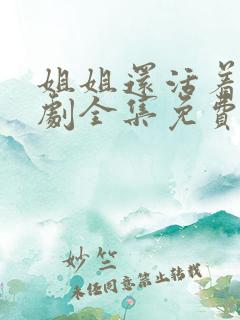 姐姐还活着
劇全集免費
妙竺
未经同意禁止转载